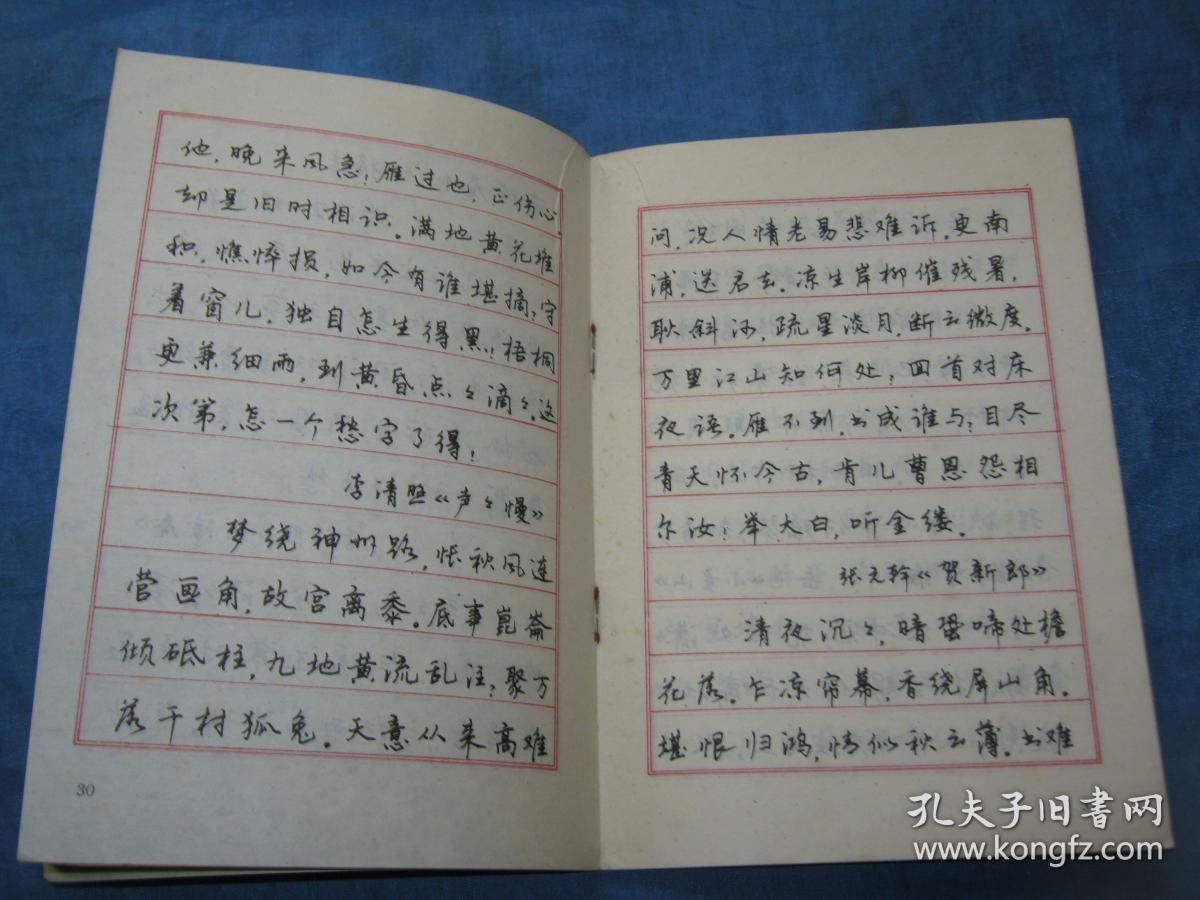 他，晚来风急？雁过也，正伤心，
却是旧时相识。满地黄花堆
积，憔悴损，如今有谁堪摘？守
着窗儿，独自怎生得黑！梧桐
更兼细雨，到黄昏点々滴々。这
次第，怎一个愁字了得！
李清照《声々慢》
梦绕神州路，怅秋风连
营画角，故宫离黍。底事崑崙
倾砥柱，九地黄流乱注？聚万
落千村狐兔。天意从来高难
30
问，况人情老易悲难诉。更南
浦，送君去。凉生岸柳催残暑，
耿斜河，疏星淡月，断云微度。
万里江山知何处？回首对床
夜语。雁不到，书成谁与？目尽
青天怀今古，肯儿曹恩怨相
尔汝！举大白，听金缕。
张元幹《贺新郎》
清夜沉々，暗蛩啼处檐
花落。乍凉帘幕，香绕屏山角。
堪恨归鸿，情似秋云薄。书难
孔夫子旧书网
www.kongfz.com